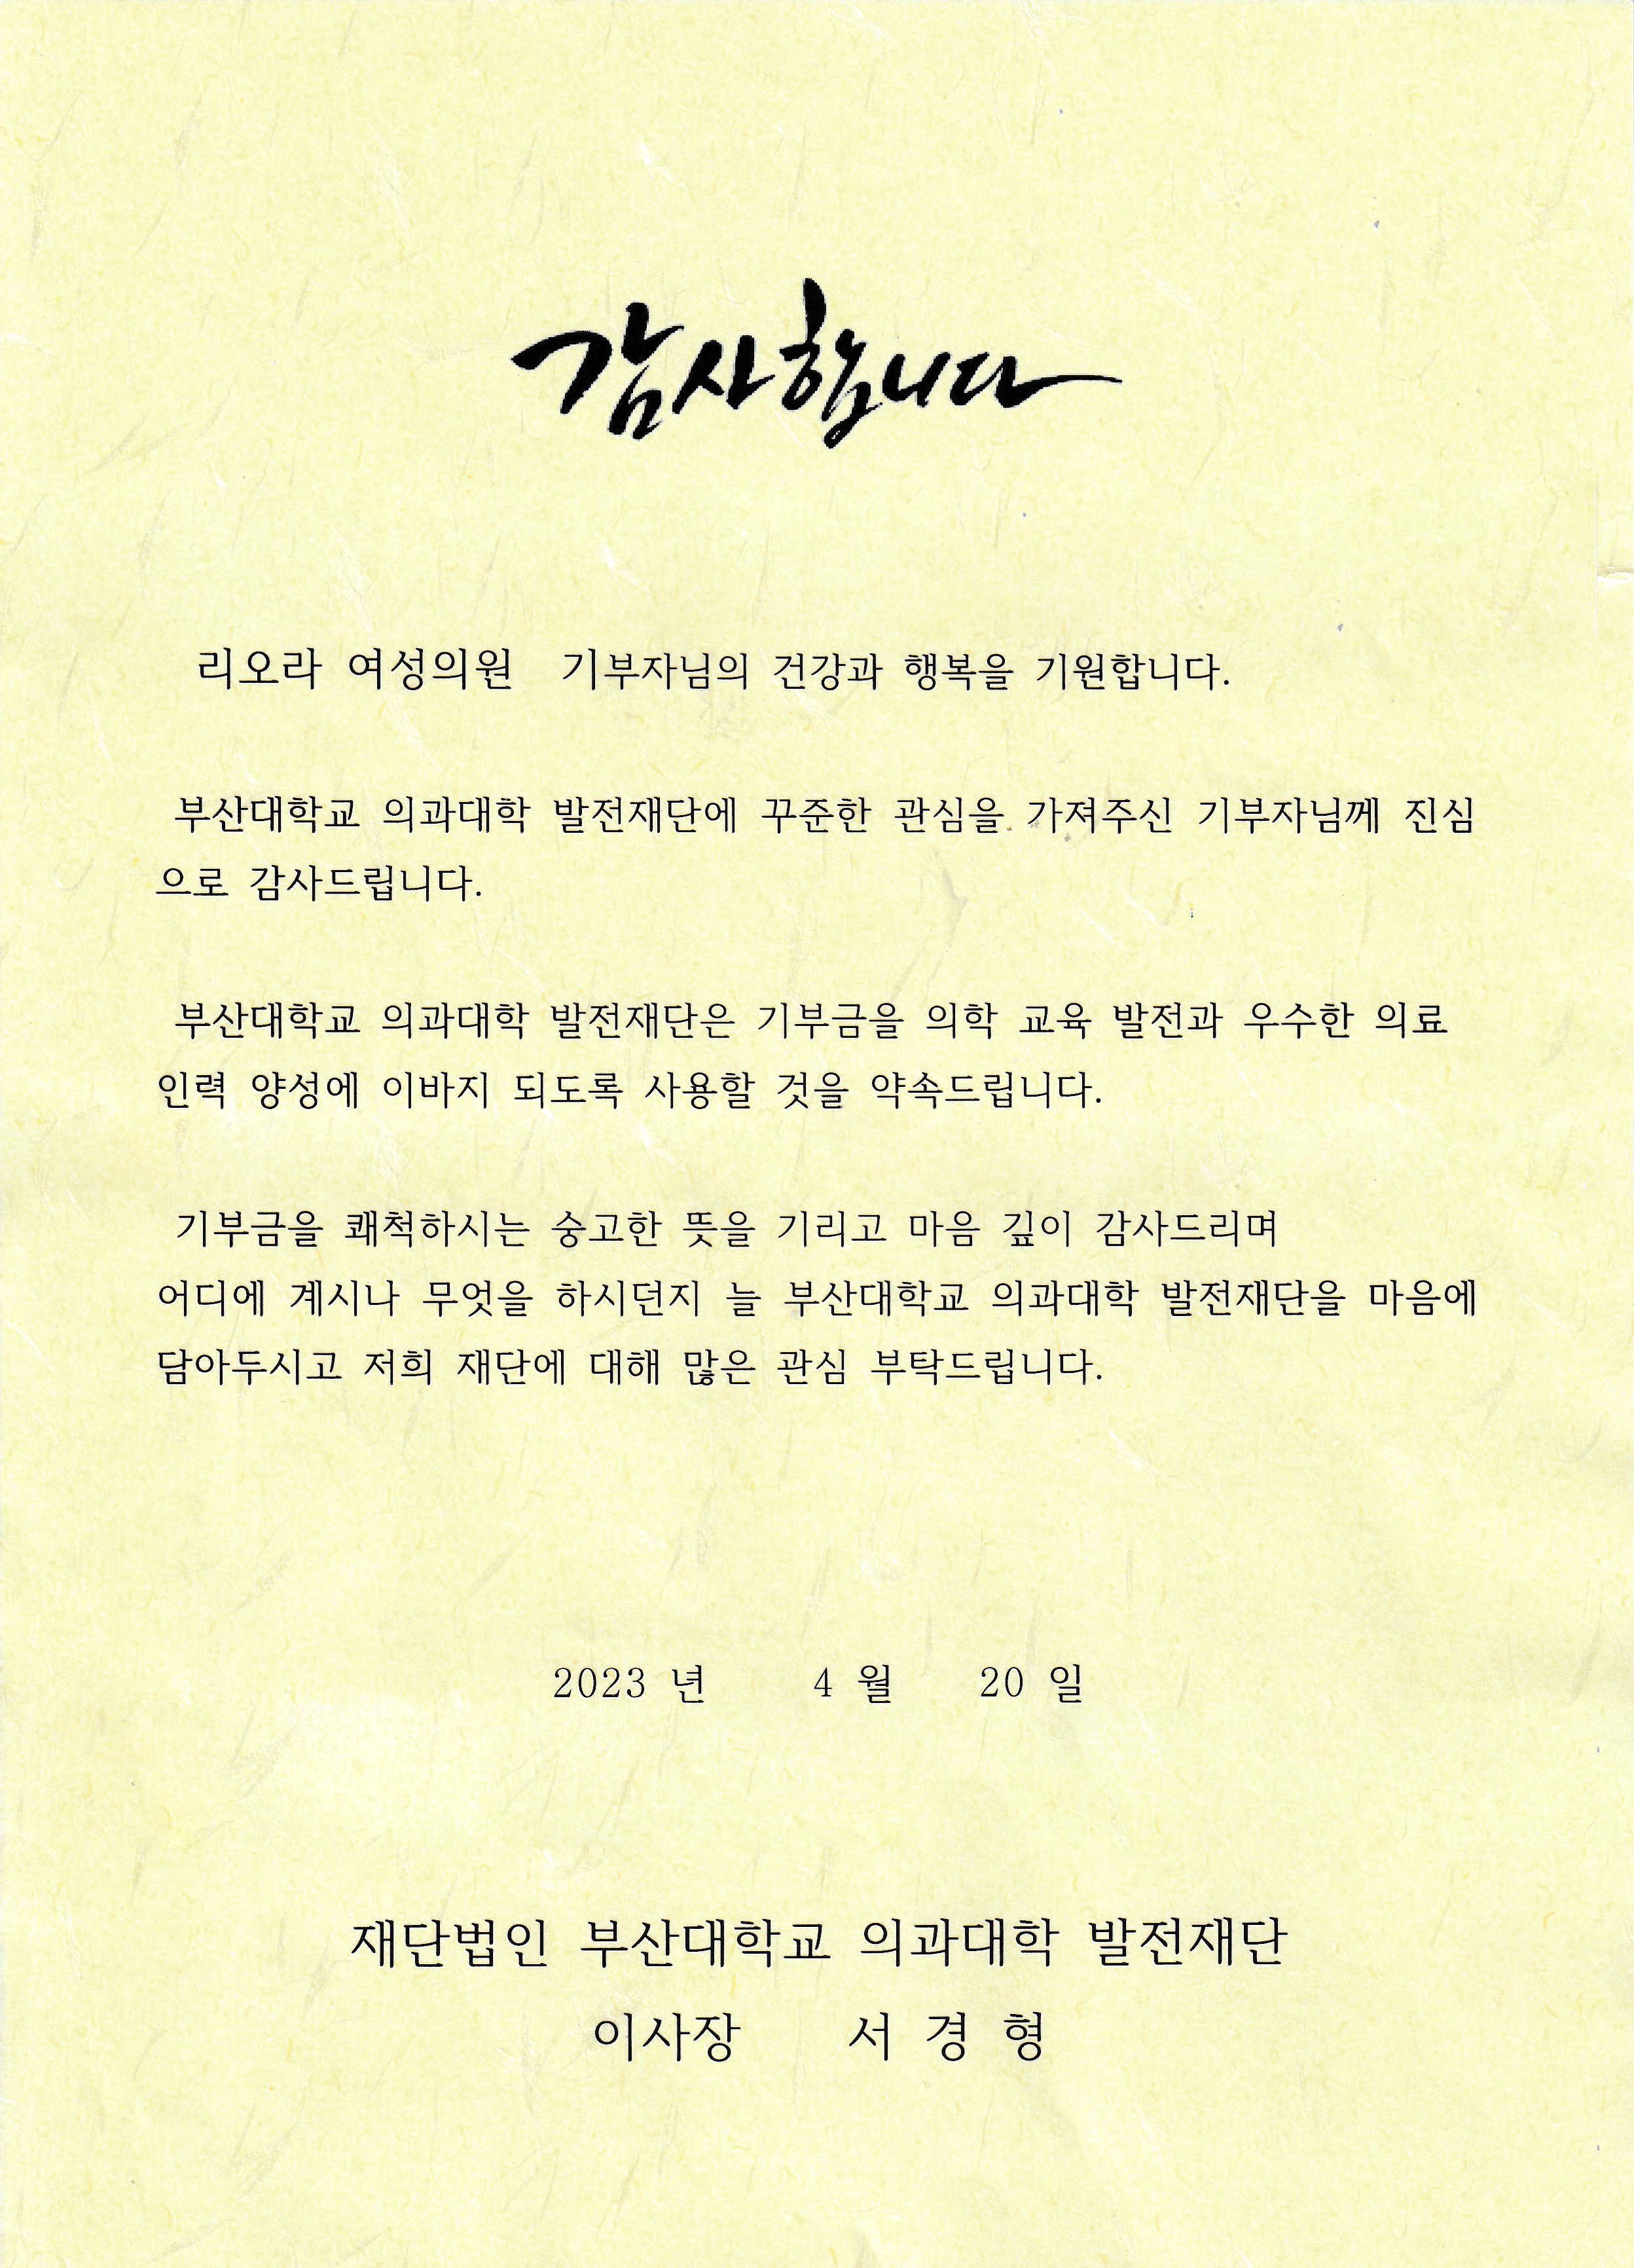 감사합니다
리오라 여성의원 기부자님의 건강과 행복을 기원합니다.
부산대학교 의과대학 발전재단에 꾸준한 관심을 가져주신 기부자님께 진심
으로 감사드립니다.
부산대학교 의과대학 발전재단은 기부금을 의학 교육 발전과 우수한 의료
인력 양성에 이바지 되도록 사용할 것을 약속드립니다.
기부금을 쾌척하시는 숭고한 뜻을 기리고 마음 깊이 감사드리며
어디에 계시나 무엇을 하시던지 늘 부산대학교 의과대학 발전재단을 마음에
담아두시고 저희 재단에 대해 많은 관심 부탁드립니다.
2023 년 4 월 20 일
재단법인 부산대학교 의과대학 발전재단
이사장 서 경 형